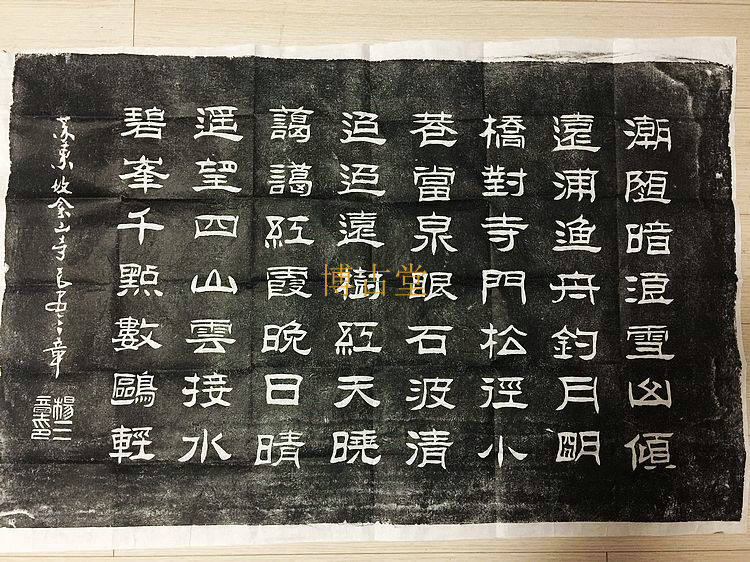 潮隨暗浪雪山傾
遠浦漁舟釣月明
橋對寺門松徑小
巷當泉眼石波清
迢迢遠樹紅天曉
藹藹紅霞晚日晴
遥望四山雲接水
碧峯千點數鷗輕
苏東坡金山寺二章
楊二章印
博古堂